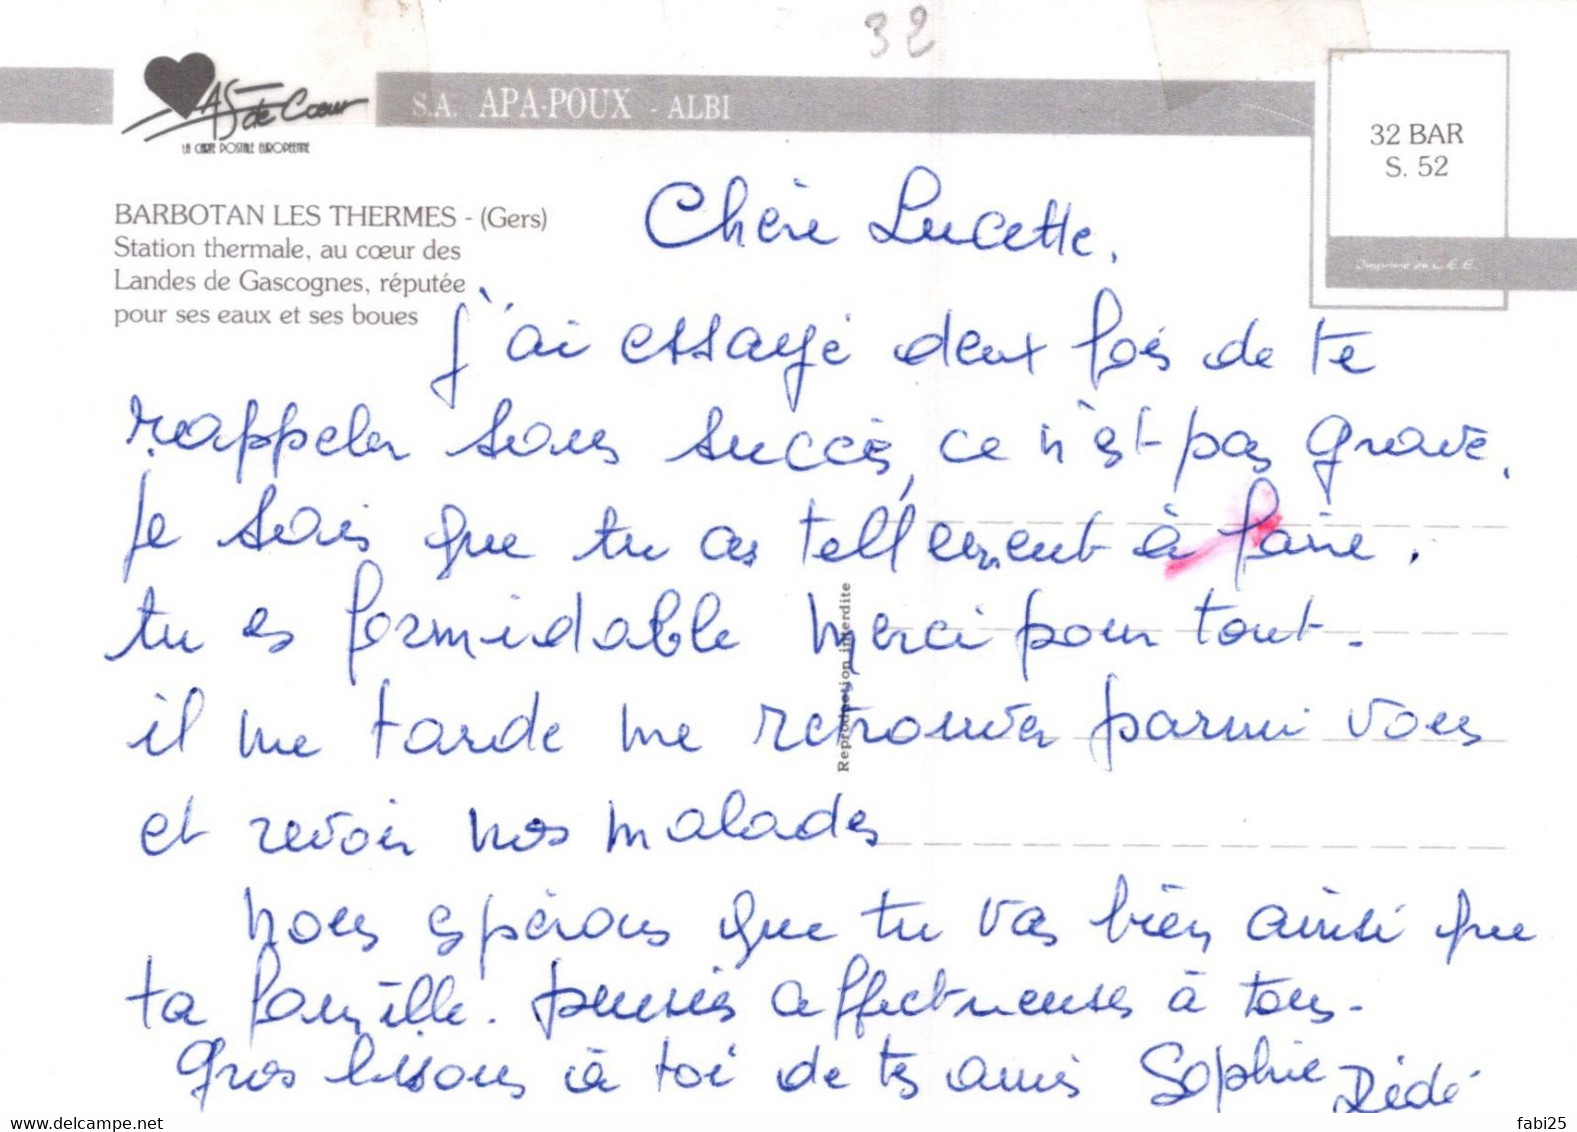 32
AS de Cœur
LA CARTE POSTALE EUROPEENNE
S.A. APA-POUX - ALBI
32 BAR
S. 52
BARBOTAN LES THERMES - (Gers)
Station thermale, au cœur des
Landes de Gascognes, réputée
pour ses eaux et ses boues
Imprimé en C.E.E.
Reproduction interdite
Chère Lucette,
j'ai essayé deux fois de te
rappeler sans succès, ce n'est pas grave.
je sais que tu as tellement à faire.
tu es formidable Merci pour tout.
il me tarde me retrouver parmi vous
et revoir nos malades
nous espérons que tu vas bien ainsi que
ta famille. pensées affectueuses à tous.
Gros bisous à toi de tes amis Sophie Dédé
delcampe.net
fabi25